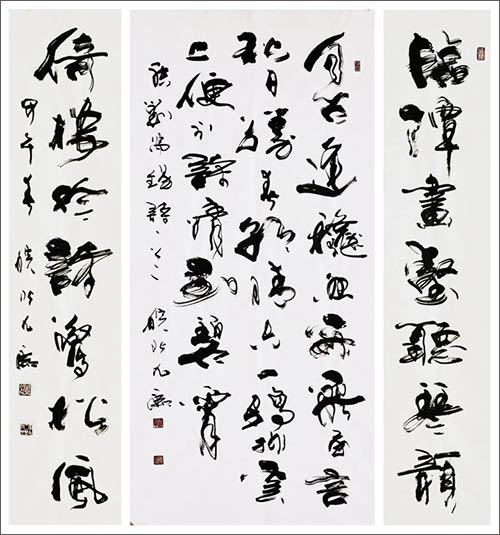 臨潭畫壑聽琴韻
自古逢龝悲寂寥我言
秋日勝春朝晴空一鶴排雲
上便引詩情到碧霄
劉禹錫
倚樓吟詩松風
甲午春